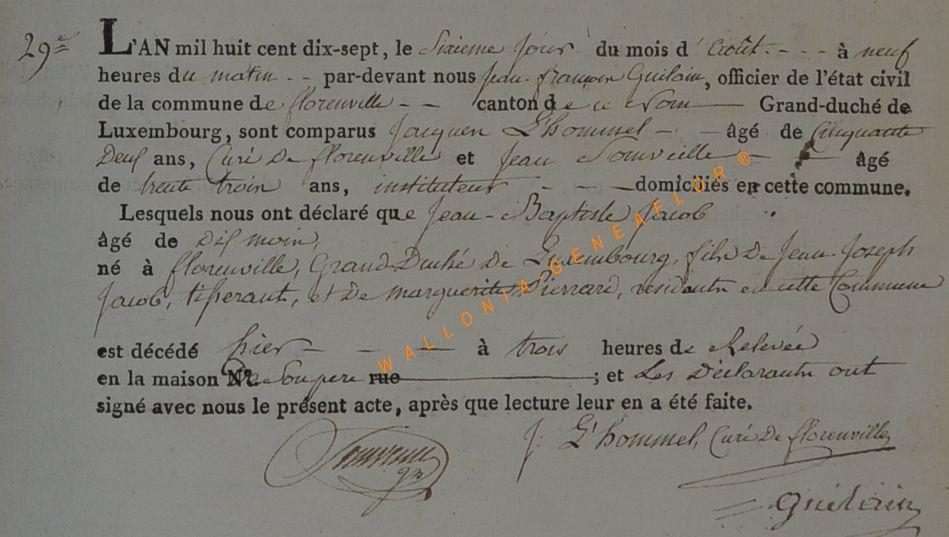 29e
L'AN mil huit cent dix-sept, le Sixieme Jour du mois d'août - - - à neuf
heures du matin - - par-devant nous Jean-françois Guilain, officier de l'état civil
de la commune de florenville - - canton de ce Nom — Grand-duché de
Luxembourg, sont comparus Jacques L'hommel - - âgé de Cinquante
Deux ans, Curé De florenville et Jean Sonveille - - âgé
de trente trois ans, instituteur - - - domiciliés en cette commune.
Lesquels nous ont déclaré que Jean-Baptiste Jacob
âgé de Dix mois,
né à florenville, Grand-Duché de Luxembourg, fils De Jean-Joseph
Jacob, tisserant, et De marguerite Pierrard, residents en cette Commune
est décédé hier - - — à trois heures de Relevée
en la maison N.o De Son pere rue — ; et Les Déclarants ont
signé avec nous le présent acte, après que lecture leur en a été faite.
J: L'hommel, Curé De florenville
Guilain
WALLONIA GENEAFLOR ®